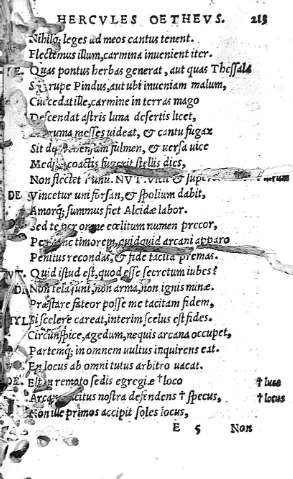 HERCVLES OETHEVS. 213
Nihilq; leges ad meos cantus tenent.
Flectemus illum, carmina inuenient iter.
DE. Quas pontus herbas generat, aut quas Thessala
rupe Pindus, aut ubi inueniam malum,
Cui cedat ille, carmine in terras mago
Descendat astris luna desertis licet,
bruma messes uideat, & cantu fugax
fulmen, & uersa uice
coactis stellis dies,
Non flectet unum. NVT.
DE. Vincetur unus forsan, & spolium dabit,
Amorq; summus fiet Alcidæ labor.
Sed te per omne cælitum numen precor,
Per timorem, quidquid arcani apparo
Penitus recondas, & fide tacita premas.
NVT. Quid istud est, quod esse secretum iubes?
DE. Non tela sunt, non arma, non ignis minæ.
Præstare fateor posse me tacitam fidem,
Si scelere careat, interim scelus est fides.
Circunspice, agedum, nequis arcana occupet,
Partemq; in omnem uultus inquirens eat.
En locus ab omni tutus arbitro uacat.
DE. Est in remoto sedis egregiæ †loco †
Arcana tacitus nostra defendens † specus, † locus
Non ille primos accipit soles locus,
E 5 Non